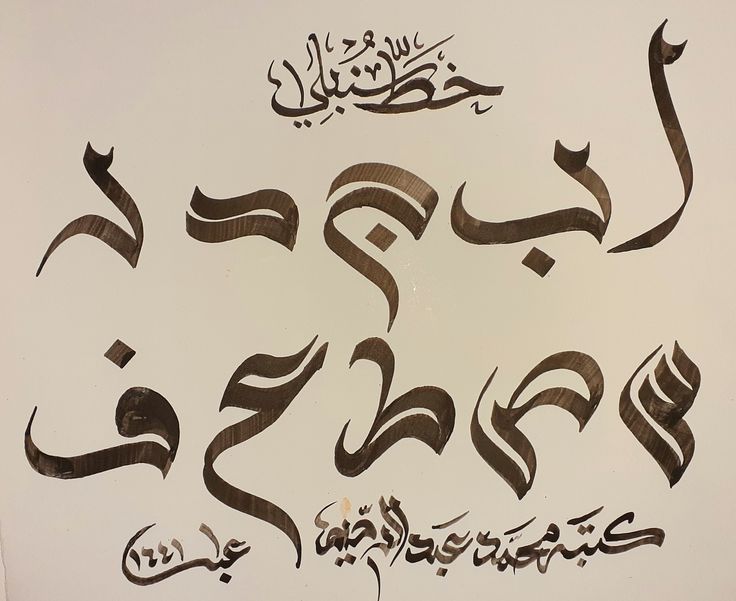 خطّ سنبلي
ا ب ج د ر
س ص ط ع ف
كتبه محمد عبد الرحيم
عام ١٤٤١